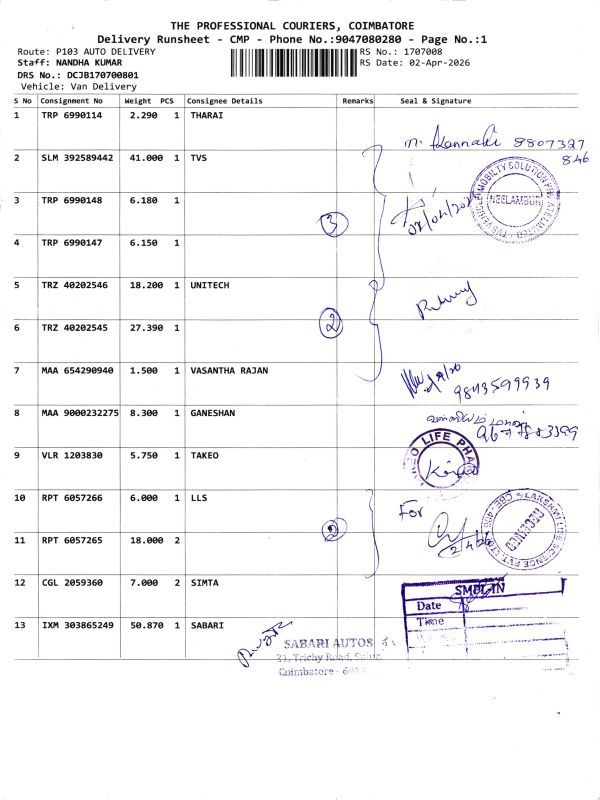 THE PROFESSIONAL COURIERS, COIMBATORE
Delivery Runsheet - CMP - Phone No.:9047080280 - Page No.:1
Route: P103 AUTO DELIVERY
RS No.: 1707008
Staff: NANDHA KUMAR
RS Date: 02-Apr-2026
DRS No.: DCJB170700801
Vehicle: Van Delivery
S No Consignment No Weight PCS Consignee Details Remarks Seal & Signature
1 TRP 6990114 2.290 1 THARAI
8807327
846
2 SLM 392589442 41.000 1 TVS
NEELAMBUR
3 TRP 6990148 6.180 1
3
4 TRP 6990147 6.150 1
5 TRZ 40202546 18.200 1 UNITECH
6 TRZ 40202545 27.390 1
2
7 MAA 654290940 1.500 1 VASANTHA RAJAN
9843599939
8 MAA 9000232275 8.300 1 GANESHAN
9 VLR 1203830 5.750 1 TAKEO
LIFE
10 RPT 6057266 6.000 1 LLS
For
2
11 RPT 6057265 18.000 2
2/4/26
12 CGL 2059360 7.000 2 SIMTA
Date
Time
13 IXM 303865249 50.870 1 SABARI
SABARI AUTOS
21, Trichy Road,
Coimbatore -